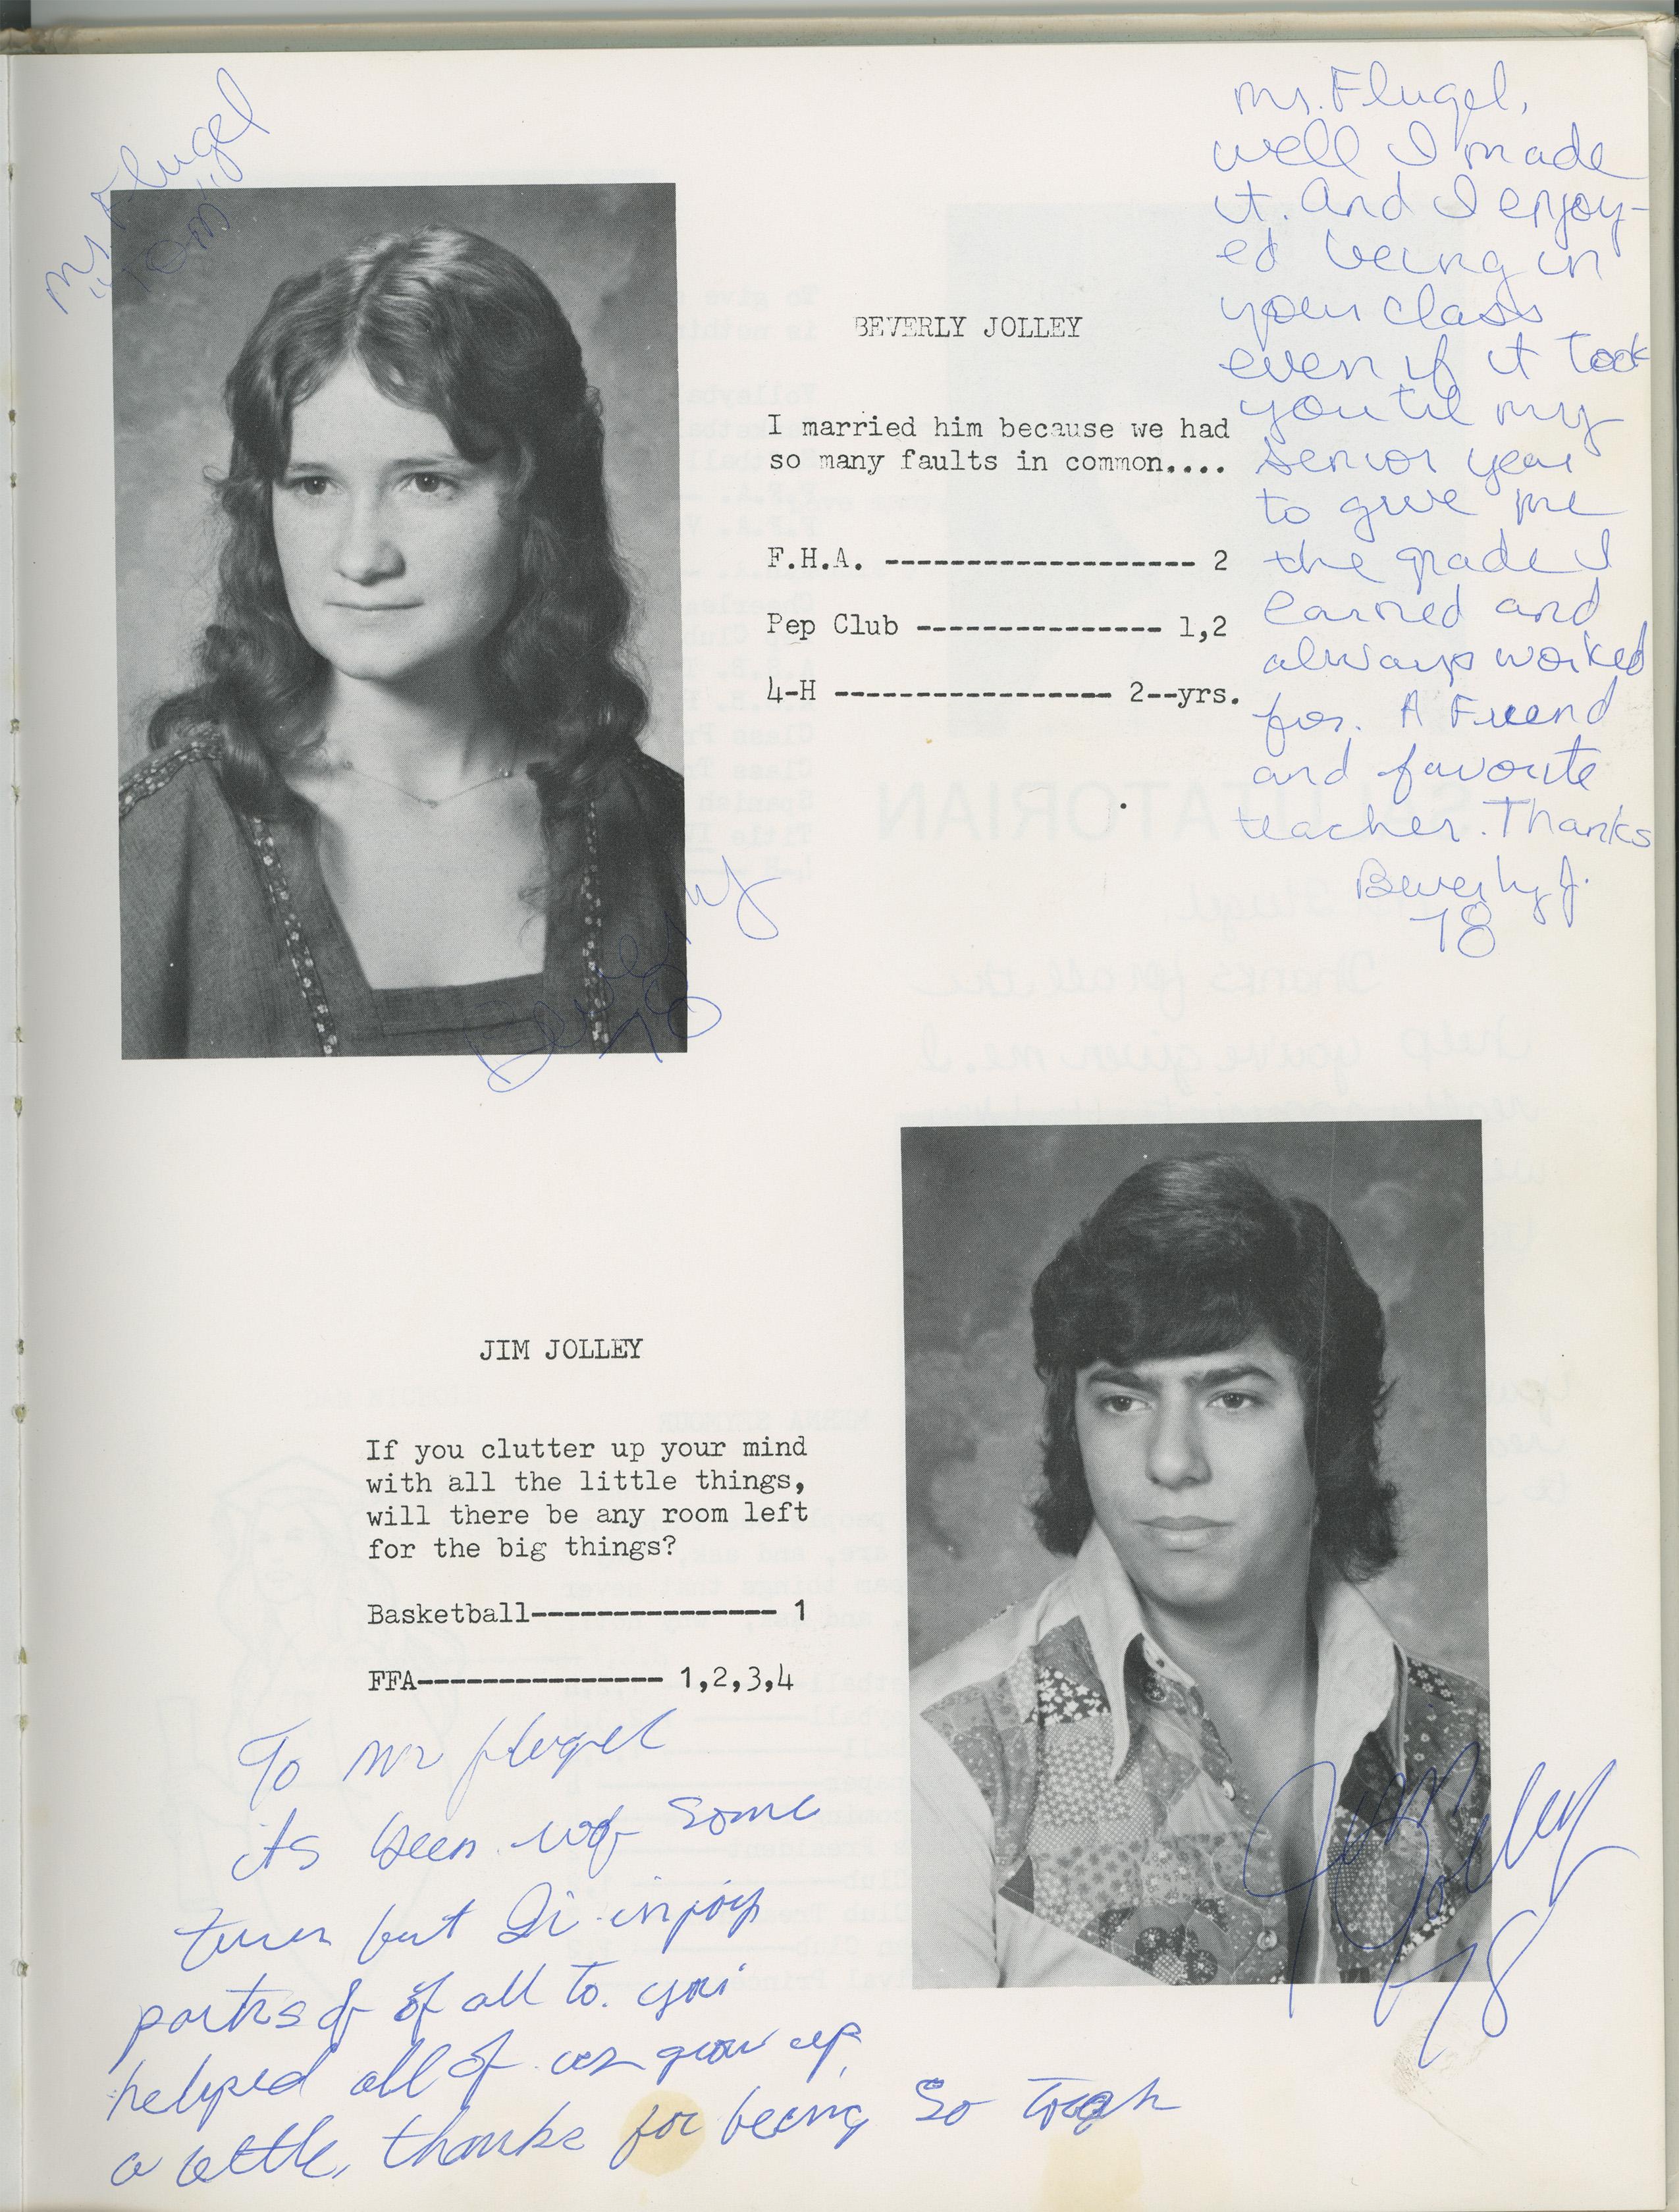 Mr. Flugel
"Tom"
Mr. Flugel,
well I made
it. And I enjoy-
ed being in
your class
even if it took
you til my
senior year
to give me
the grade I
earned and
always worked
for. A Friend
and favorite
teacher. Thanks
Beverly J.
78
BEVERLY JOLLEY
I married him because we had
so many faults in common....
F.H.A. ------------------- 2
Pep Club --------------- 1,2
4-H ----------------- 2--yrs.
Beverly
78
JIM JOLLEY
If you clutter up your mind
with all the little things,
will there be any room left
for the big things?
Basketball--------------- 1
FFA--------------- 1,2,3,4
To Mr Flugel
its been some
but injoy
parts of of all to. you
helped all of us grow up
a little, thanks for being so tough
Jim Jolley
78
SALUTATORIAN